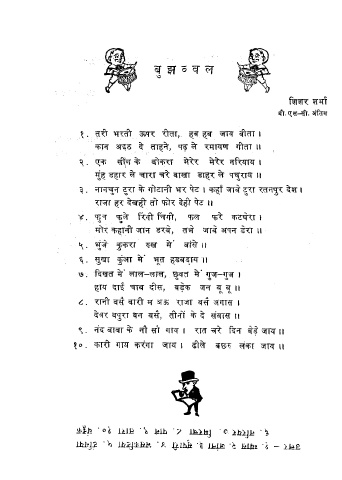 बुझव्वल
जिशर शर्मा
बी. एस-सी. अंतिम
१. तरी भरती ऊपर रीता, हब हब जाय बीता।
कान अइठ दे लाहने, पढ़ ले रमायण गीता॥
२. एक सींग के बोकरा मेरेर मेरेर नरियाय।
मुंह डहार ले चारा चरे बाखा डाहर ले पघुराय॥
३. नानचुन टुरा के गोटानी भर पेट। कहाँ जाबे टुरा रतनपुर देश।
राजा हर देखही तो फोर देही पेट॥
४. फुन फुले रिंगी चिंगी, फल फरे कटघेरा।
मोर कहानी जान डरबे, तभे जाबे अपन डेरा॥
५. भुंजे कुकरा रुख में बासे॥
६. सुखा कुंआ में भूत हडबडाय॥
७. दिखत में लाल-लाल, छुवत में गुज-गुज।
हाय दाई चाब दीस, बड़ेक जन बू बू॥
८. रानी बर्स बारी म अऊ राजा बर्स अगास।
देवर बपुरा बन बर्स, तीनों के दे संवास॥
९. नंद बाबा के नौ सौ गाय। रात चरे दिन बेड़े जाय॥
१०. कारी गाय करंगा जाय। ढीले बछरु लंका जाय॥